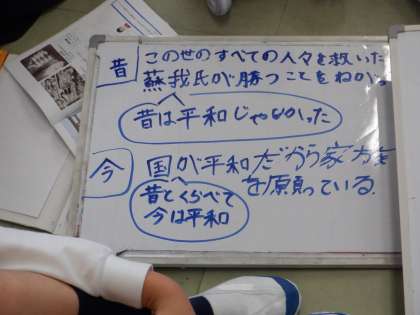 昔
この世のすべての人々を救いた
蘇我氏が勝つことをねがう
昔は平和じゃなかった
今
国が平和だから家
を願っている
昔とくらべて
今は平和